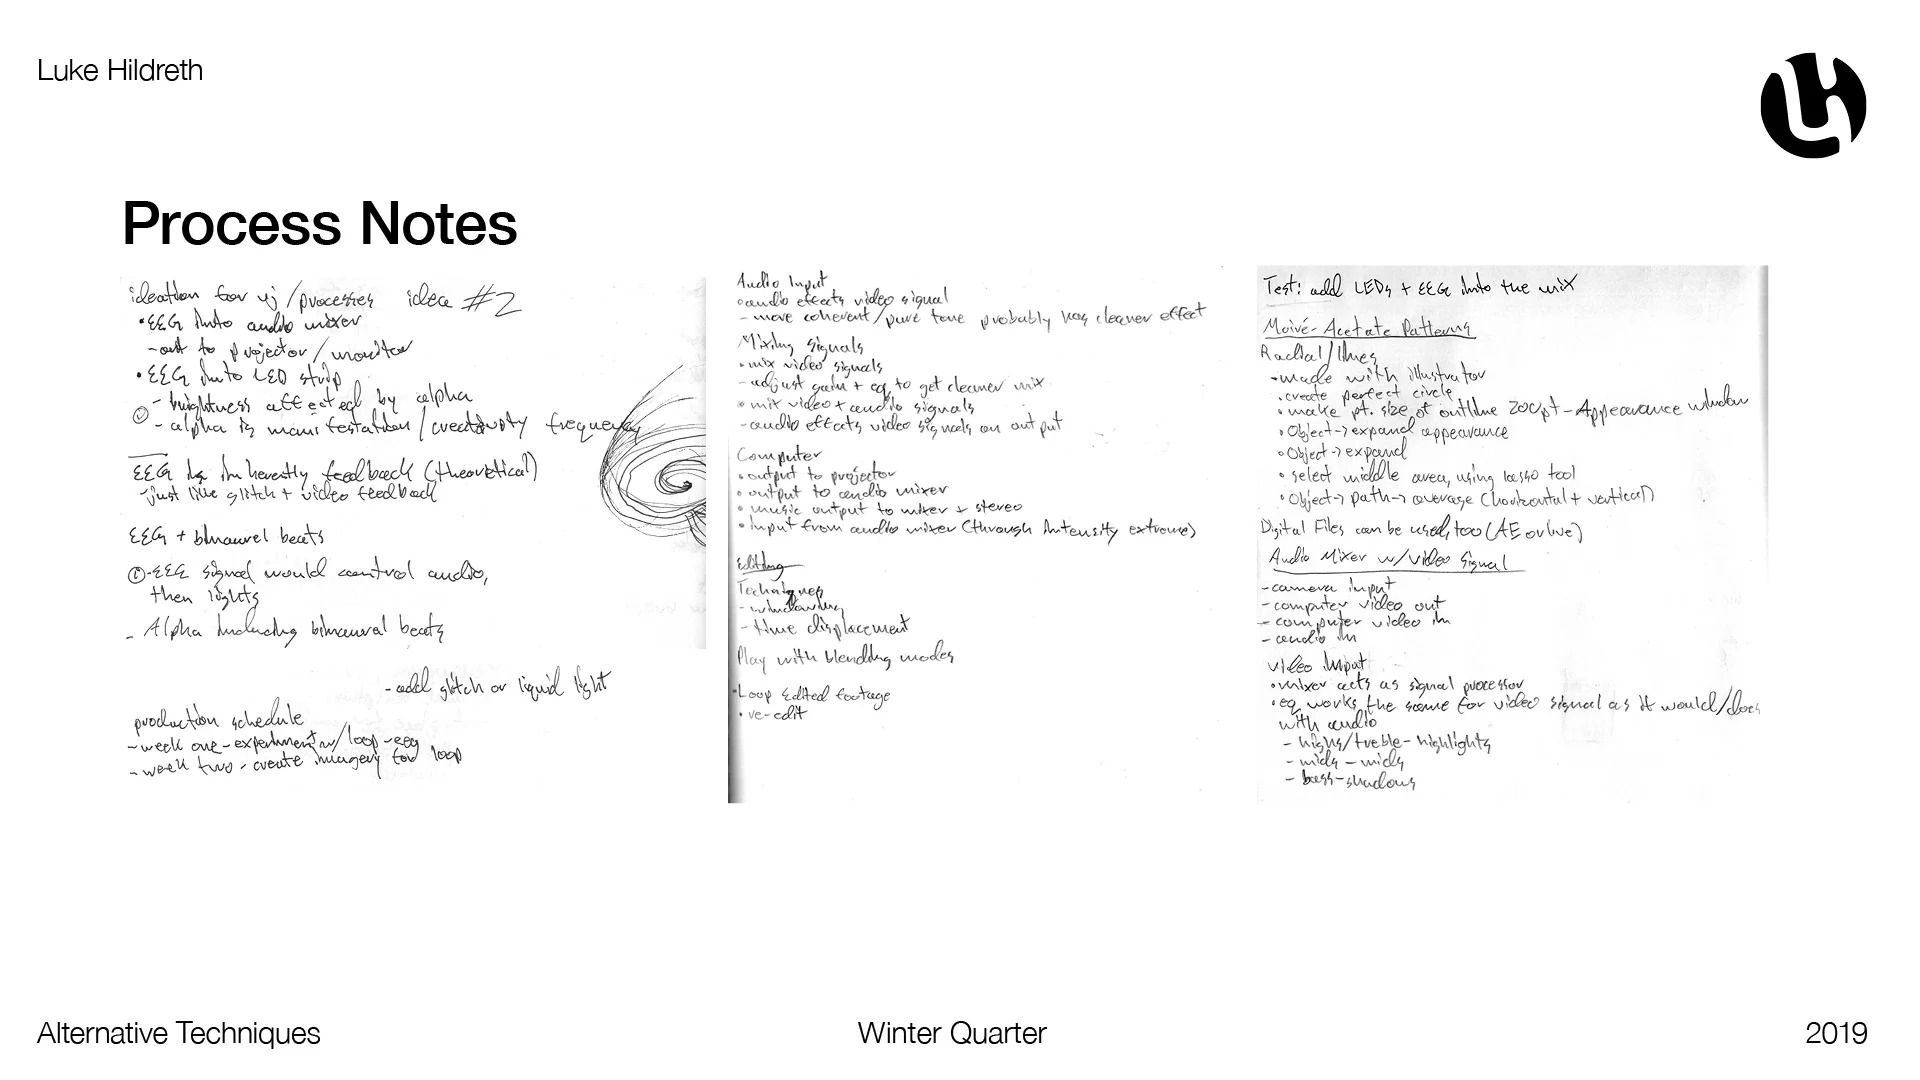 Luke Hildreth
Process Notes
ideation for vj/processes idea #2
•EEG into audio mixer
-out to projector/monitor
•EEG into LED strip
- brightness affected by alpha
- alpha is manifestation/creativity frequency
EEG is inherently feedback (theoretical)
-just like glitch + video feedback
EEG + binaurel beats
-EEG signal would control audio,
then lights
- Alpha including binaural beats
-add glitch or liquid light
production schedule
-week one-experiment w/loop-eeg
-week two-create imagery for loop
Audio Input
•audio effects video signal
-more coherent/pure tone probably has cleaner effect
Mixing signals
•mix video signals
-adjust gain + eq to get cleaner mix
•mix video + audio signals
-audio effects video signals on output
Computer
•output to projector
•output to audio mixer
•music output to mixer + stereo
•input from audio mixer (through intensity extreme)
Editing
Techniques
-windowing
-time displacement
Play with blending modes
•Loop edited footage
•re-edit
Test: add LEDs + EEG into the mix
Moiré-Acetate Patterns
Radial/lines
•made with illustrator
•create perfect circle
•make pt. size of outline 200pt-Appearance window
•Object->expand appearance
•Object->expand
•select middle area, using lasso tool
•Object->path->average (horizontal + vertical)
Digital Files can be used, too (AE or live)
Audio Mixer w/Video Signal
-camera input
-computer video out
-computer video in
-audio in
video input
•mixer acts as signal processor
•eq works the same for video signal as it would/does
with audio
-highs/treble-highlights
-mids-mids
-bass-shadows
Alternative Techniques
Winter Quarter
2019